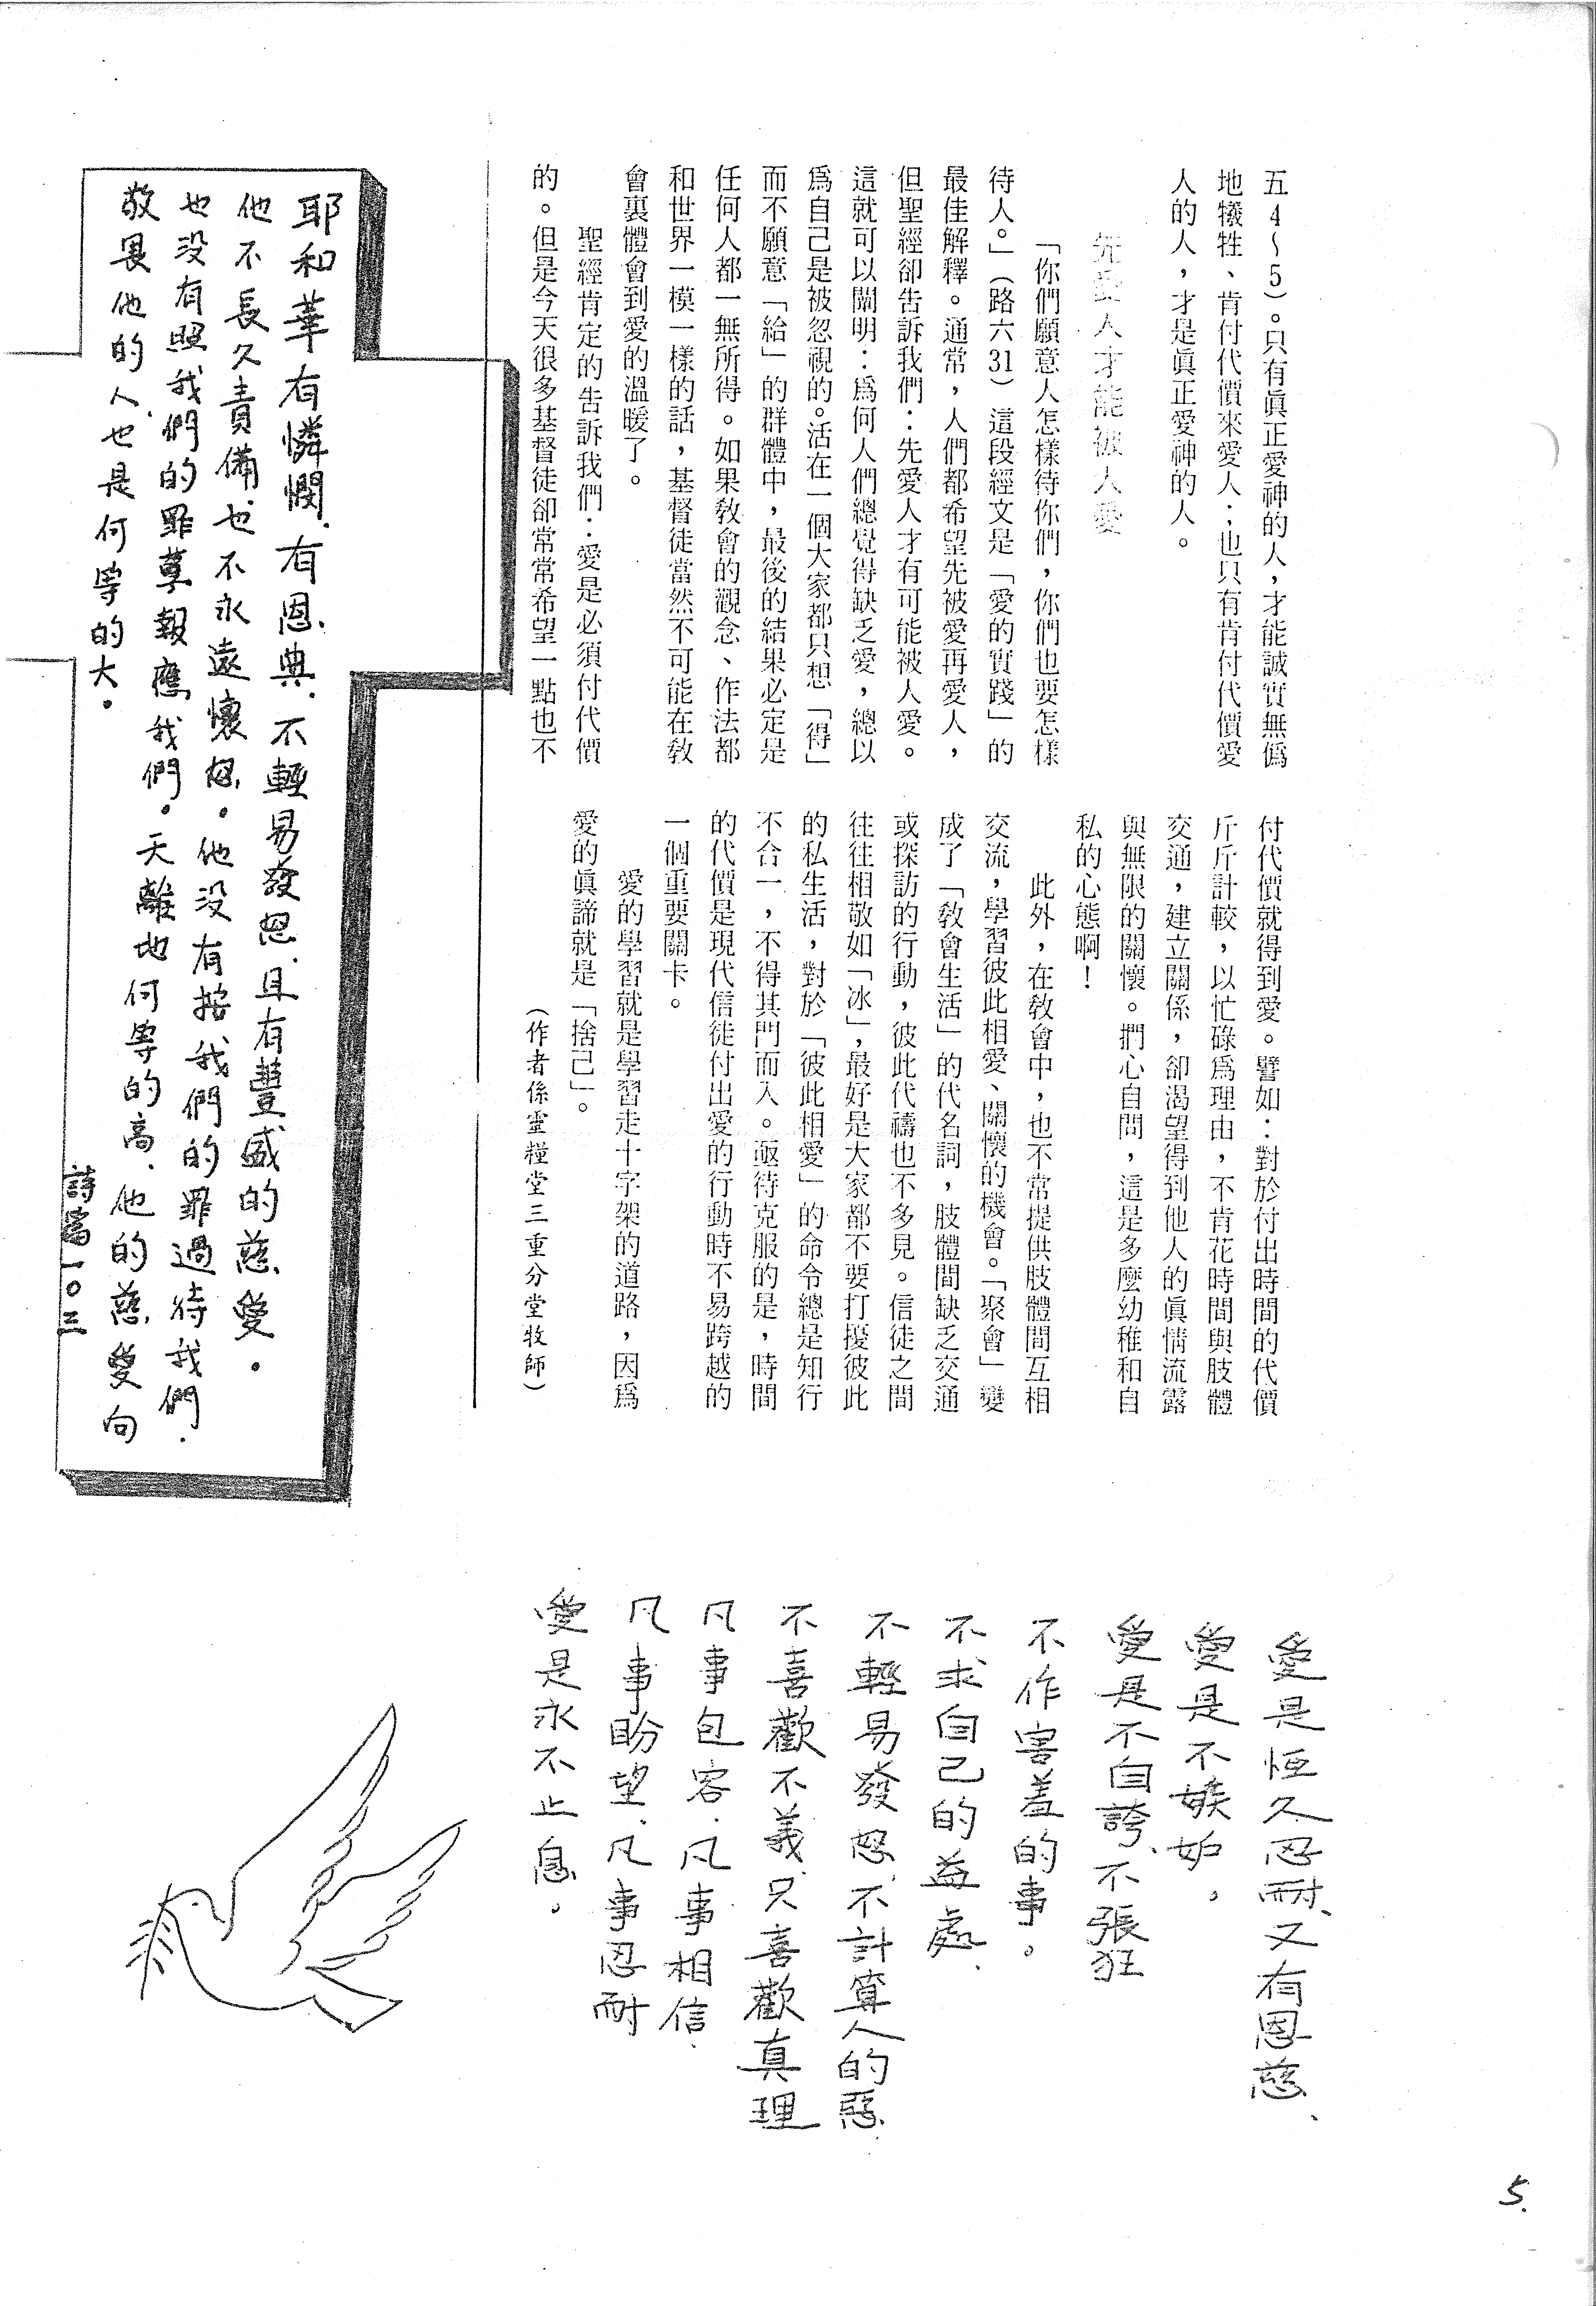 五4～5）。只有眞正愛神的人，才能誠實無僞
地犧牲、肯付代價來愛人；也只有肯付代價愛
人的人，才是眞正愛神的人。
先愛人才能被人愛
「你們願意人怎樣待你們，你們也要怎樣
待人。」（路六31）這段經文是「愛的實踐」的
最佳解釋。通常，人們都希望先被愛再愛人，
但聖經卻告訴我們：先愛人才有可能被人愛。
這就可以闡明：爲何人們總覺得缺乏愛，總以
爲自己是被忽視的。活在一個大家都只想「得」
而不願意「給」的群體中，最後的結果必定是
任何人都一無所得。如果敎會的觀念、作法都
和世界一模一樣的話，基督徒當然不可能在敎
會裏體會到愛的溫暖了。
聖經肯定的告訴我們：愛是必須付代價
的。但是今天很多基督徒卻常常希望一點也不
付代價就得到愛。譬如：對於付出時間的代價
斤斤計較，以忙碌爲理由，不肯花時間與肢體
交通，建立關係，卻渴望得到他人的眞情流露
與無限的關懷。捫心自問，這是多麼幼稚和自
私的心態啊！
此外，在敎會中，也不常提供肢體間互相
交流，學習彼此相愛、關懷的機會。「聚會」變
成了「敎會生活」的代名詞，肢體間缺乏交通
或探訪的行動，彼此代禱也不多見。信徒之間
往往相敬如「冰」，最好是大家都不要打擾彼此
的私生活，對於「彼此相愛」的命令總是知行
不合一，不得其門而入。亟待克服的是，時間
的代價是現代信徒付出愛的行動時不易跨越的
一個重要關卡。
愛的學習就是學習走十字架的道路，因爲
愛的眞諦就是「捨己」。
（作者係靈糧堂三重分堂牧師）
耶和華有憐憫、有恩典、不輕易發怒、且有豐盛的慈愛。
他不長久責備、也不永遠懷怒。他没有按我們的罪過待我們、
也没有照我們的罪孽報應我們。天離地何等的高、他的慈愛向
敬畏他的人、也是何等的大。
詩篇一〇三
愛是恒久忍耐、又有恩慈、
愛是不嫉妒。
愛是不自誇、不張狂
不作害羞的事。
不求自己的益處、
不輕易發怒、不計算人的惡
不喜歡不義、只喜歡真理
凡事包容、凡事相信、
凡事盼望、凡事忍耐
愛是永不止息。
5.